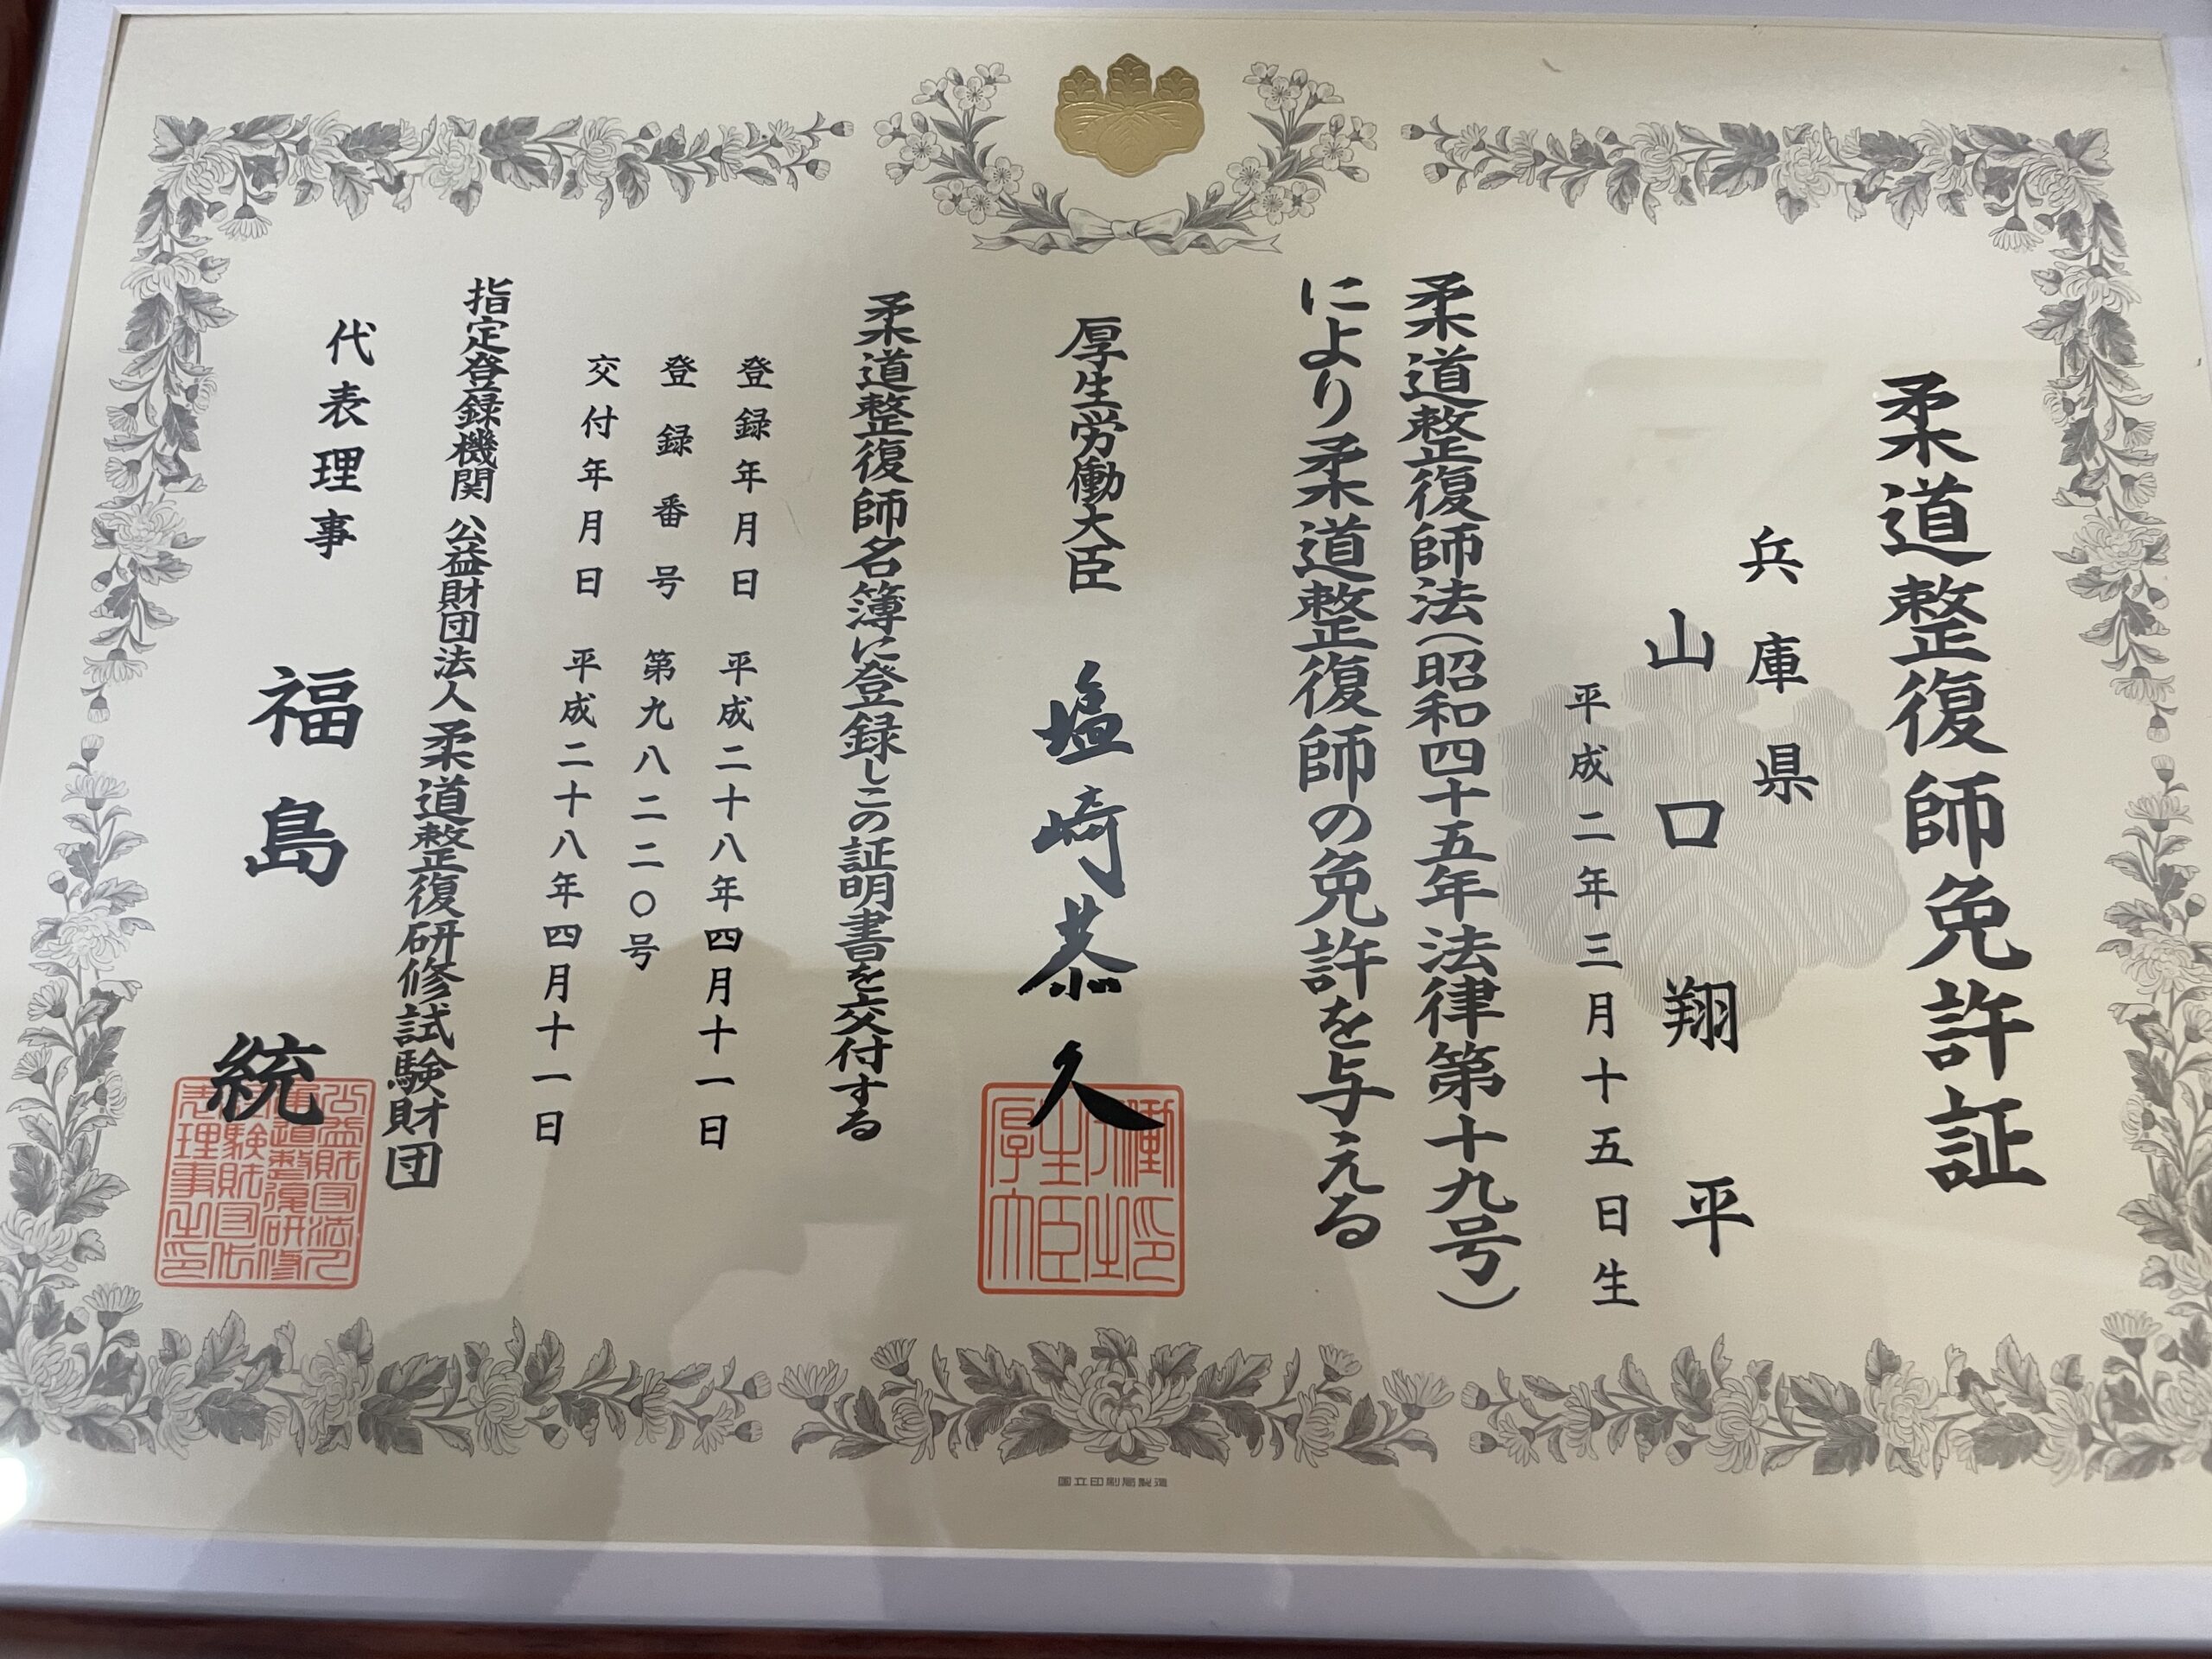 柔道整復師免許証
兵庫県
山口翔平
平成二年三月十五日生
柔道整復師法(昭和四十五年法律第十九号)
により柔道整復師の免許を与える
厚生労働大臣 塩崎恭久
厚生労働大臣之印
柔道整復師名簿に登録しこの証明書を交付する
登録年月日 平成二十八年四月十一日
登録番号 第九八二二〇号
交付年月日 平成二十八年四月十一日
指定登録機関 公益財団法人 柔道整復研修試験財団
代表理事 福島統
国立印刷局製造